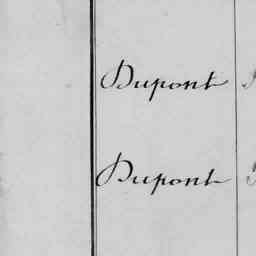 Dupont
Dupont